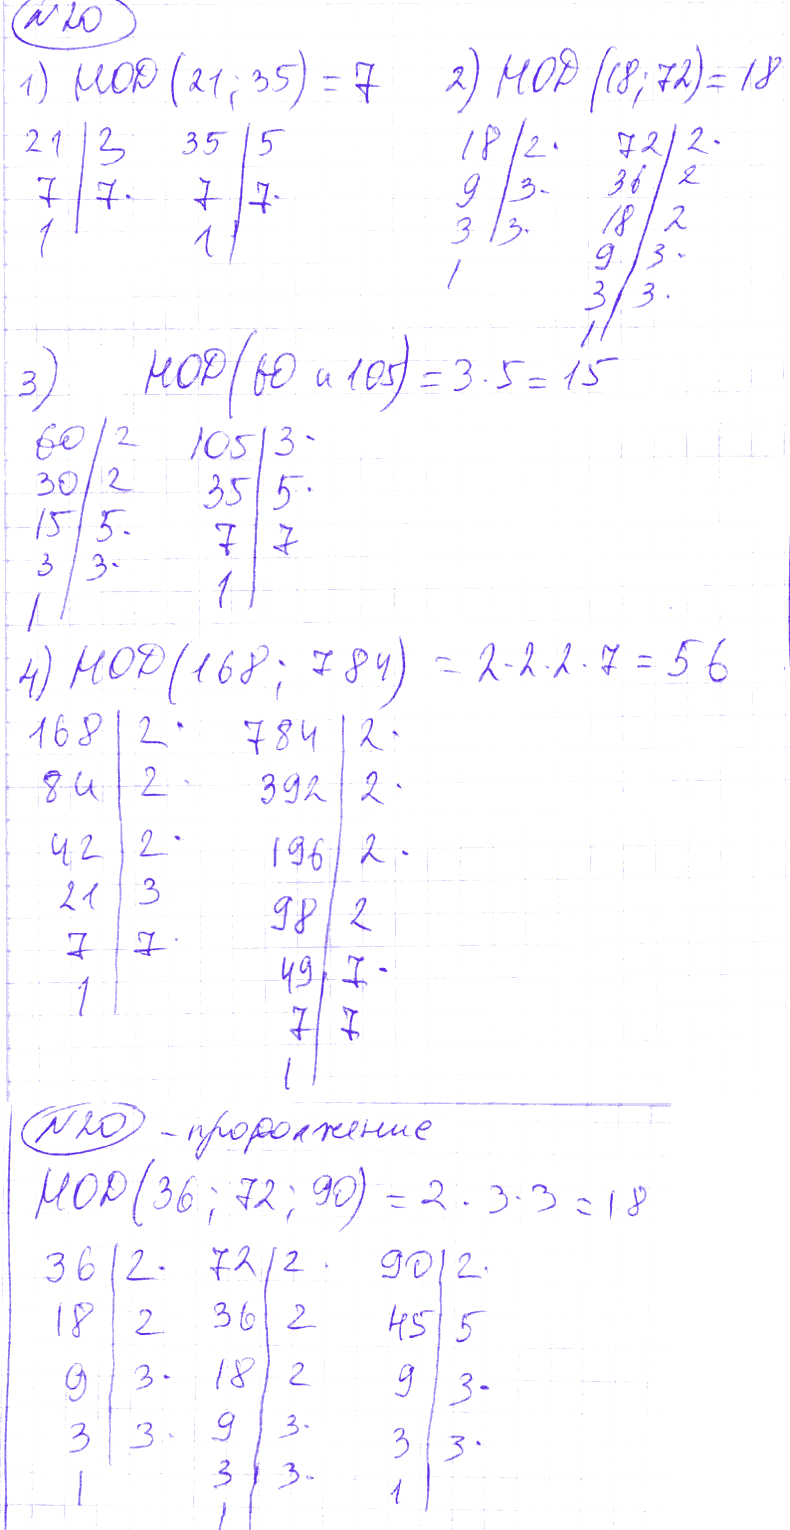 N20
1) НОД (21; 35) = 7 2) НОД (18; 72) = 18
21 | 3 35 | 5 18 | 2. 72 | 2.
7 | 7. 7 | 7. 9 | 3. 36 | 2
1 1 3 | 3. 18 | 2
1 9 | 3.
3 | 3.
1
3) НОД (60 и 105) = 3·5 = 15
60 | 2 105 | 3.
30 | 2 35 | 5.
15 | 5. 7 | 7
3 | 3. 1
1
4) НОД (168; 784) = 2·2·2·7 = 56
168 | 2. 784 | 2.
84 | 2. 392 | 2.
42 | 2. 196 | 2.
21 | 3 98 | 2
7 | 7. 49 | 7.
1 7 | 7
1
N20 - продолжение
НОД (36; 72; 90) = 2·3·3 = 18
36 | 2. 72 | 2. 90 | 2.
18 | 2 36 | 2 45 | 5
9 | 3. 18 | 2 9 | 3.
3 | 3. 9 | 3. 3 | 3.
1 3 | 3. 1
1